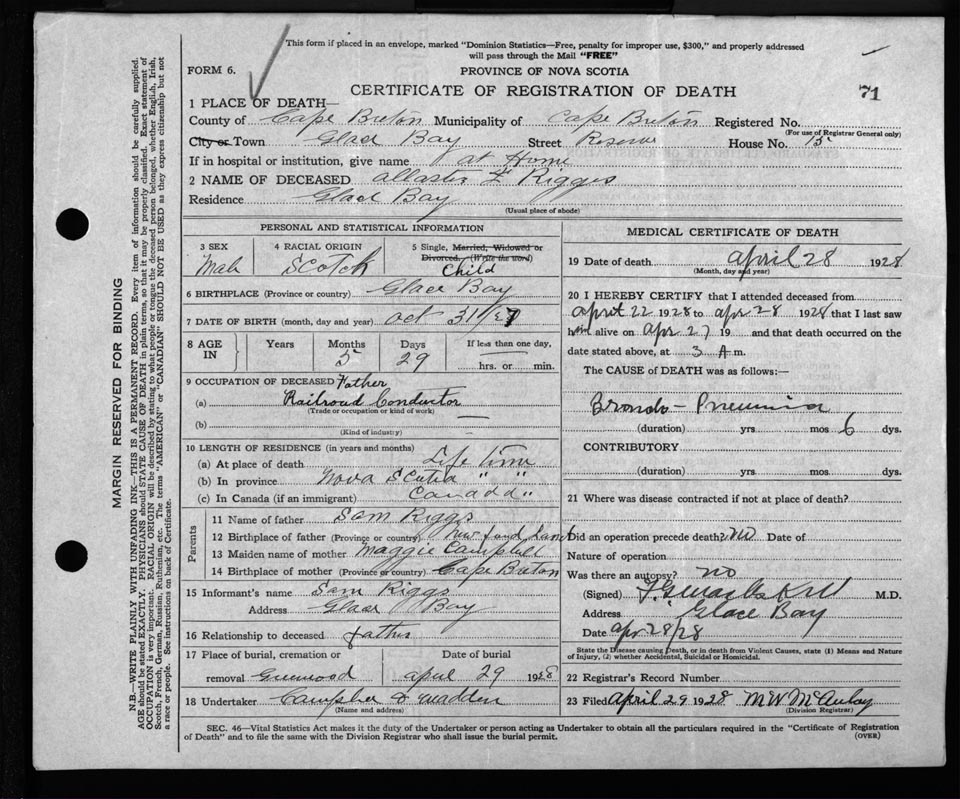 This form if placed in an envelope, marked "Dominion Statistics—Free, penalty for improper use, $300," and properly addressed
will pass through the Mail "FREE"
FORM 6.
PROVINCE OF NOVA SCOTIA
CERTIFICATE OF REGISTRATION OF DEATH
71
1 PLACE OF DEATH—
County of Cape Breton Municipality of Cape Breton Registered No.
(For use of Registrar General only)
City or Town Glace Bay Street Reserve House No. 15
If in hospital or institution, give name at Home
2 NAME OF DECEASED Allaster F Riggs
Residence Glace Bay
(Usual place of abode)
PERSONAL AND STATISTICAL INFORMATION
3 SEX Male
4 RACIAL ORIGIN Scotch
5 Single, Married, Widowed or
Divorced. (Write the word)
Child
6 BIRTHPLACE (Province or country) Glace Bay
7 DATE OF BIRTH (month, day and year) Oct 31/27
8 AGE IN Years Months 5 Days 29 If less than one day,
hrs. or min.
9 OCCUPATION OF DECEASED Father
(a) Railroad Conductor
(Trade or occupation or kind of work)
(b) —
(Kind of industry)
10 LENGTH OF RESIDENCE (in years and months)
(a) At place of death Life Time
(b) In province Nova Scotia " "
(c) In Canada (if an immigrant) Canada "
Parents
11 Name of father Sam Riggs
12 Birthplace of father (Province or country) New found land
13 Maiden name of mother Maggie Campbell
14 Birthplace of mother (Province or country) Cape Breton
15 Informant's name Sam Riggs
Address Glace Bay
16 Relationship to deceased father
17 Place of burial, cremation or
removal Greenwood
Date of burial
april 29 1928
18 Undertaker Campbell & Wadden
(Name and address)
MEDICAL CERTIFICATE OF DEATH
19 Date of death april 28 1928
(Month, day and year)
20 I HEREBY CERTIFY that I attended deceased from
april 22 1928 to apr 28 1928 that I last saw
him alive on apr 27 19 and that death occurred on the
date stated above, at 3 A.m.
The CAUSE of DEATH was as follows:—
Broncho - Pneumonia
(duration) yrs mos 6 dys.
CONTRIBUTORY
(duration) yrs mos dys.
21 Where was disease contracted if not at place of death?
Did an operation precede death? no Date of
Nature of operation
Was there an autopsy? no
(Signed) M.D.
Address Glace Bay
Date apr 28/28
State the Disease causing Death, or in death from Violent Causes, state (1) Means and Nature
of Injury, (2) whether Accidental, Suicidal or Homicidal.
22 Registrar's Record Number
23 Filed April 29 1928 M W McAulay
(Division Registrar)
SEC. 46—Vital Statistics Act makes it the duty of the Undertaker or person acting as Undertaker to obtain all the particulars required in the "Certificate of Registration
of Death" and to file the same with the Division Registrar who shall issue the burial permit.
(OVER)
MARGIN RESERVED FOR BINDING
N.B.—WRITE PLAINLY WITH UNFADING INK—THIS IS A PERMANENT RECORD. Every item of information should be carefully supplied.
AGE should be stated EXACTLY. PHYSICIANS should STATE CAUSE OF DEATH in plain terms, so that it may be properly classified. Exact statement of
OCCUPATION is very important. RACIAL ORIGIN will be described by stating to what people or tongue the deceased person belonged, whether English, Irish,
Scotch, French, German, Russian, Ruthenian, etc. The terms "AMERICAN" or "CANADIAN" SHOULD NOT BE USED as they express citizenship but not
a race or people. See instructions on back of Certificate.